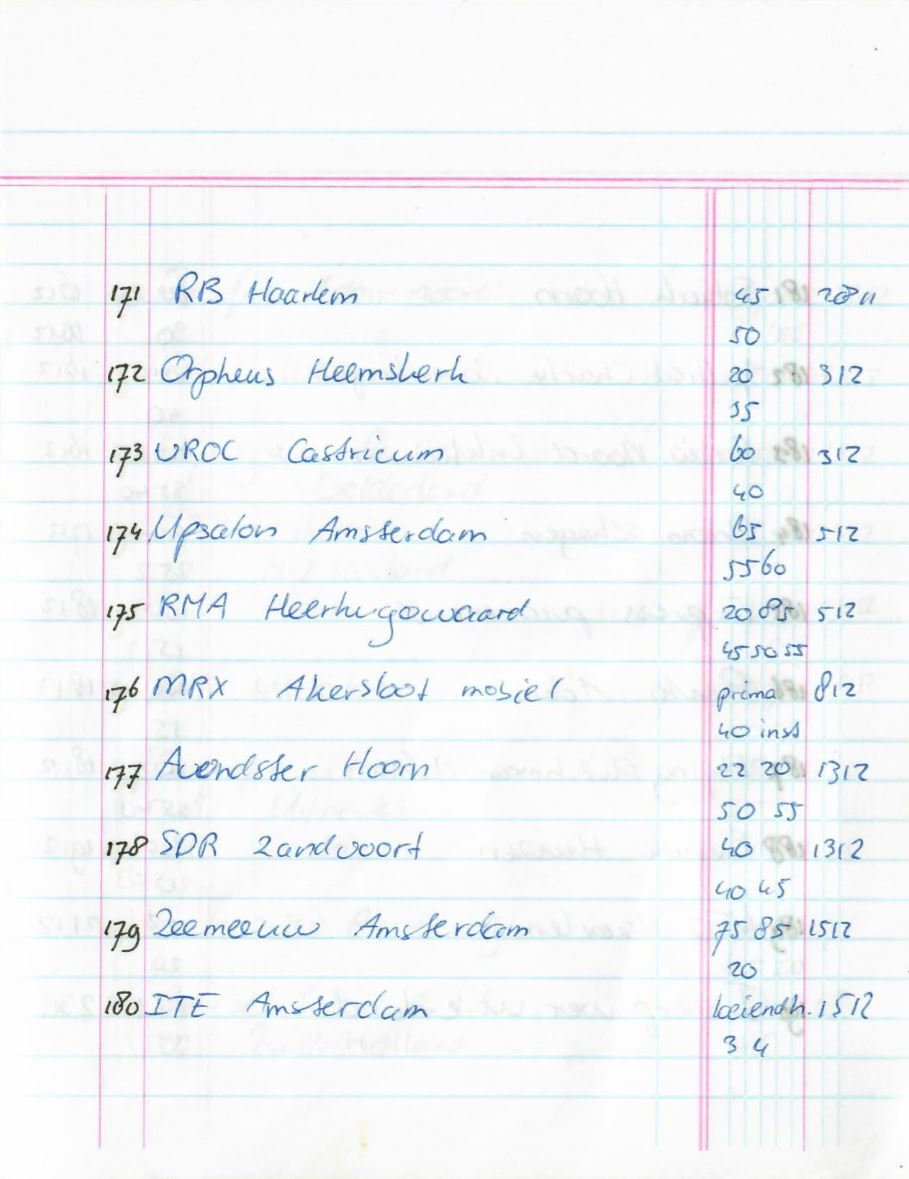 171 RB Haarlem 45 2811
50
172 Orpheus Heemskerk 20 312
35
173 UROC Castricum 60 312
40
174 Upsalon Amsterdam 65 512
55 60
175 RMA Heerhugowaard 20 85 512
45 50 55
176 MRX Akersloot mobiel prima 812
40 inst
177 Avondster Hoorn 22 20 1312
50 55
178 SDR Zandvoort 40 1312
40 45
179 Zeemeeuw Amsterdam 75 85 1512
20
180 ITE Amsterdam 1512
3 4